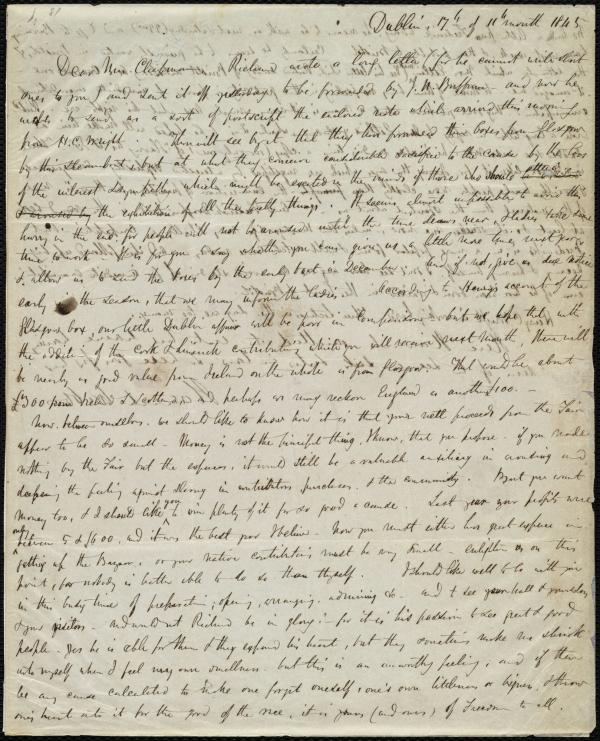 Dublin, 17th of 11th month 1845
Dear Mrs. Chapman Richard wrote a long letter (for he cannot write short
ones to you) and sent it off yesterday to be forwarded by J. N. Buffum - and now he
wishes to send as a sort of postscript the enclosed note which arrived this morning
from H. C. Wright. Thou wilt see by it that they have promised their boxes from Glasgow
by this Steamboat, but at what they conceive considerable sacrifice to the cause by the loss
of the interest & sympathy which might be excited in the minds of those who should
the exhibition of all their pretty things. It seems almost impossible to avoid this
hurry in the end, for people will not be aroused until the time draws near, & ladies take some
time to work. It is for you to say whether you can give us a little more time next year
& allow us to send the boxes by the early boat in December, and if not, give us due notice
early in the Season, that we may inform the ladies. According to Henry's account of the
Glasgow box, our little Dublin affair will be poor in comparison, but we hope that with
the addition of the Cork & Limerick contributions which you will receive next month there will
be nearly as good value from Ireland on the whole as from Glasgow. That would be about
£300 from Ireland & Scotland & perhaps we may reckon England as another £100.
Now, between ourselves, we should like to know how it is that your nett proceeds from the Fair
appear to be so small - Money is not the principal thing, I know, that you propose - if you made
nothing by the Fair but the expenses, it would still be a valuable auxiliary in arousing and
deepening the feeling against Slavery in contributors, purchasers, & the community. But you want
money too, & I should like you to win plenty of it for so good a cause. Last year your profits were
only between 5 & £600, and it was the best year I believe. Now you must either have great expense in
getting up the Bazaar, or your native contributions must be very small. enlighten us on this
point, for nobody is better able to do so than thyself. I should like well to be with you
in this busy time of preparation; opening, arranging, admiring &c. and to see your hall & yourselves
& your visitors - and would not Richard be in glory! - for it is his passion to see great & good
people - Yes he is able for them & they expand his heart, but they sometimes make me shrink
into myself when I feel my own smallness - but this is an unworthy feeling, and if there
be any cause calculated to make one forget oneself, one's own littleness or bigness, & throw
one's heart into it for the good of the race, it is yours (and ours) of Freedom to all.